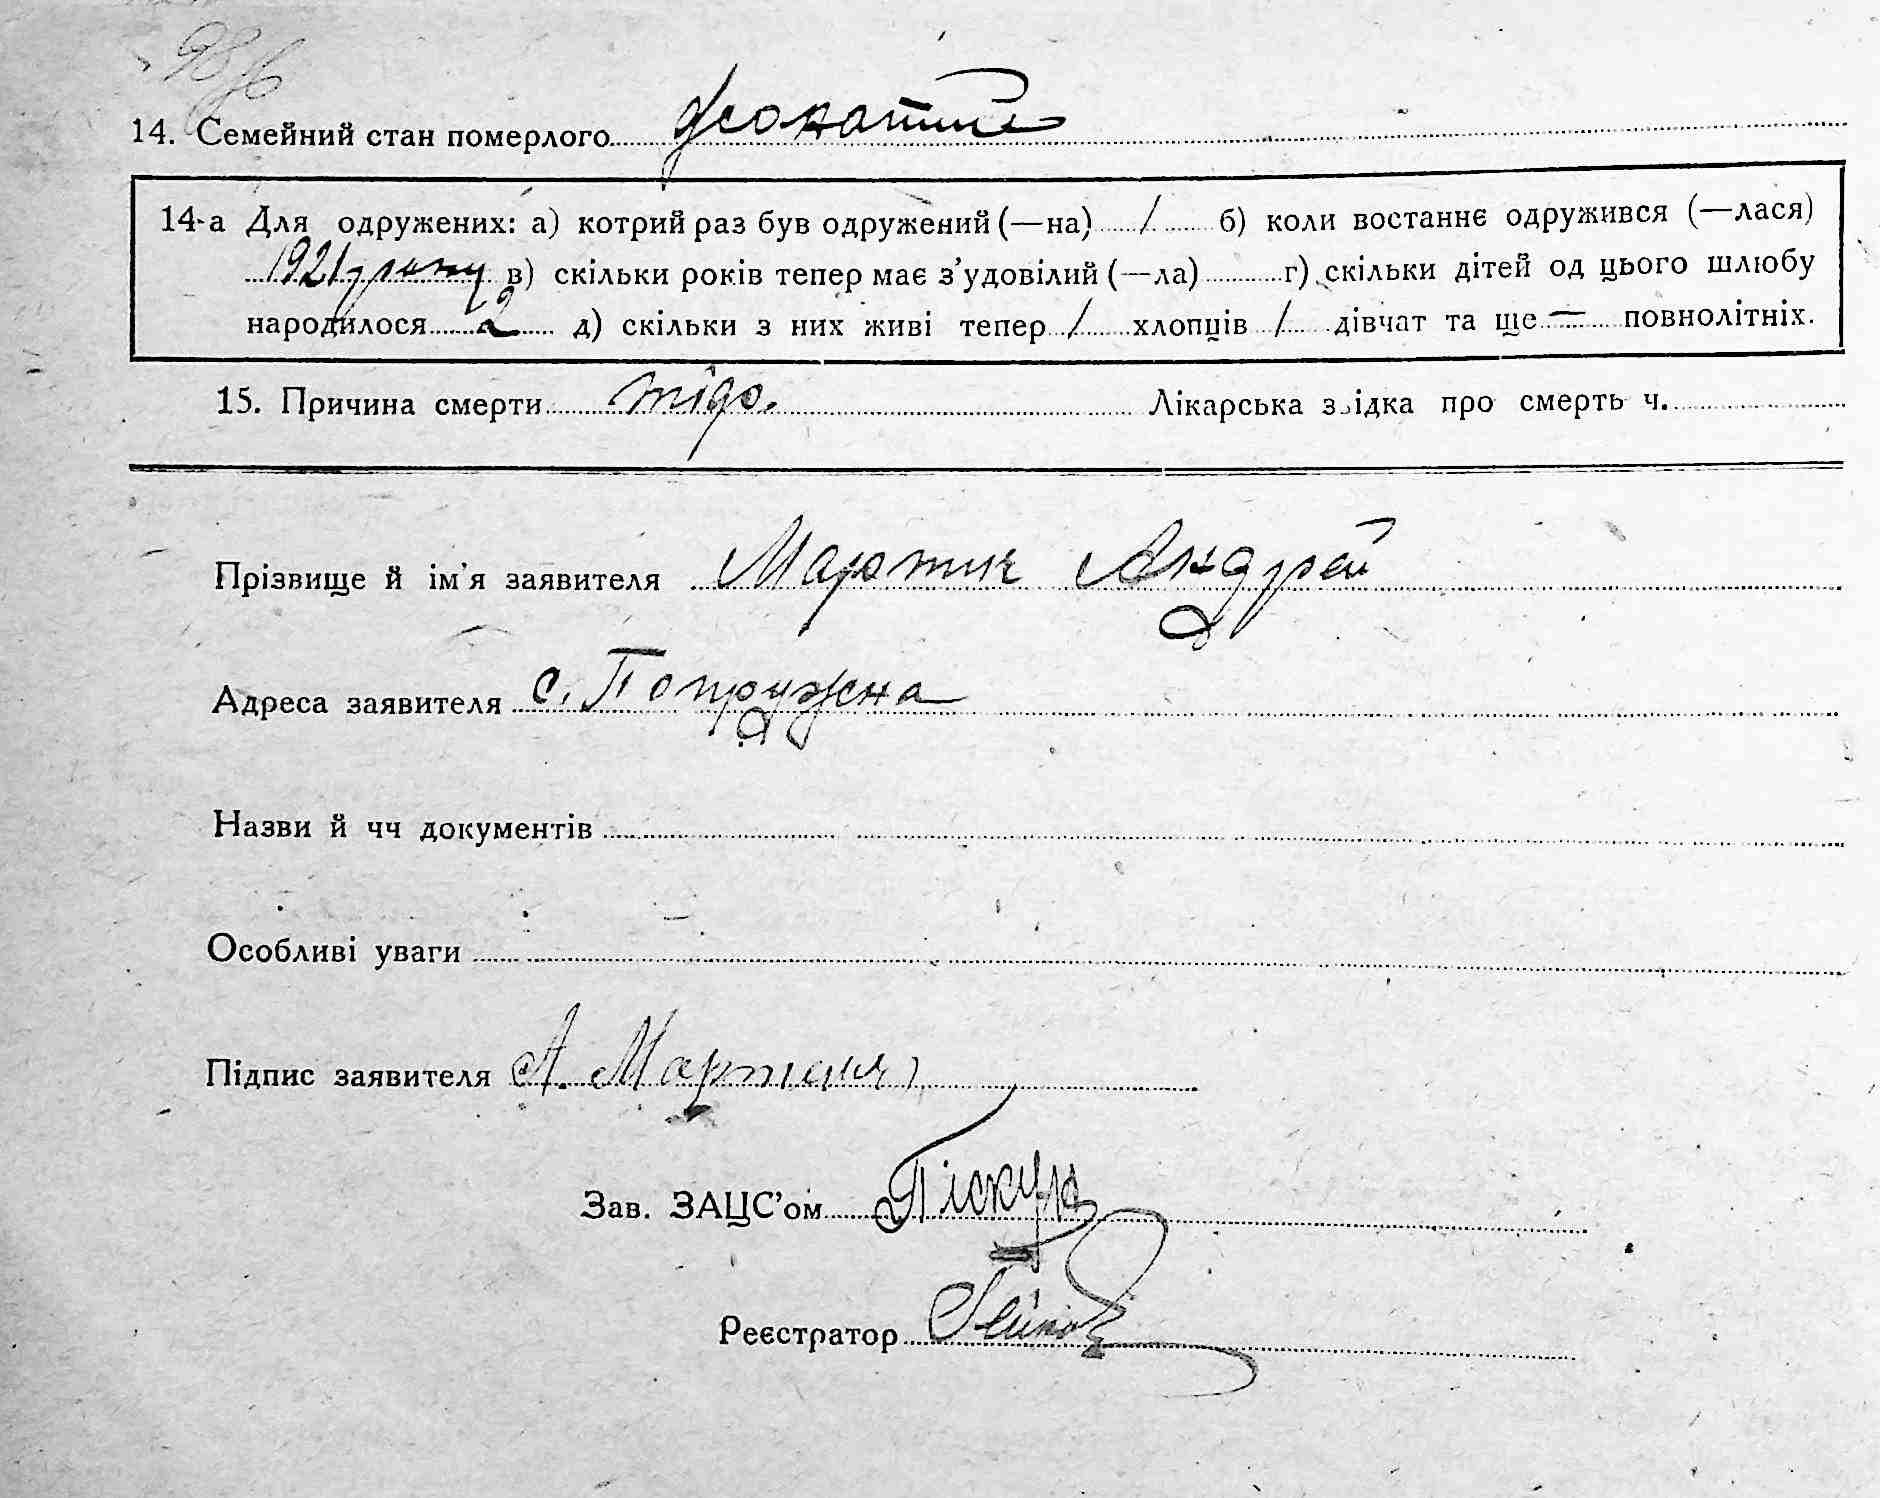 14. Семейний стан померлого жонатий
14-а Для одружених: а) котрий раз був одружений (—на) / б) коли востаннє одружився (—лася)
1921 року в) скільки років тепер має з’удовілий (—ла) г) скільки дітей од цього шлюбу
народилося 2 д) скільки з них живі тепер / хлопців / дівчат та ще — повнолітніх.
15. Причина смерти Лікарська звідка про смерть ч.
Прізвище й ім’я заявителя Андрей
Адреса заявителя с. Попружна
Назви й чч документів
Особливі уваги
Підпис заявителя А.
Зав. ЗАЦС’ом Піскун
Реєстратор